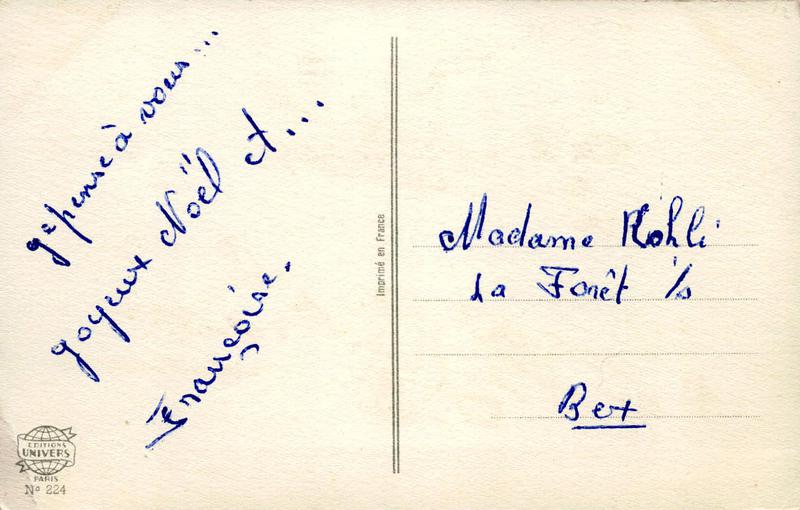 je pense à vous...
joyeux Noël et...
Françoise.
Imprimé en France
Madame Kohli
La Forêt s/
Bex
EDITIONS
UNIVERS
PARIS
No 224